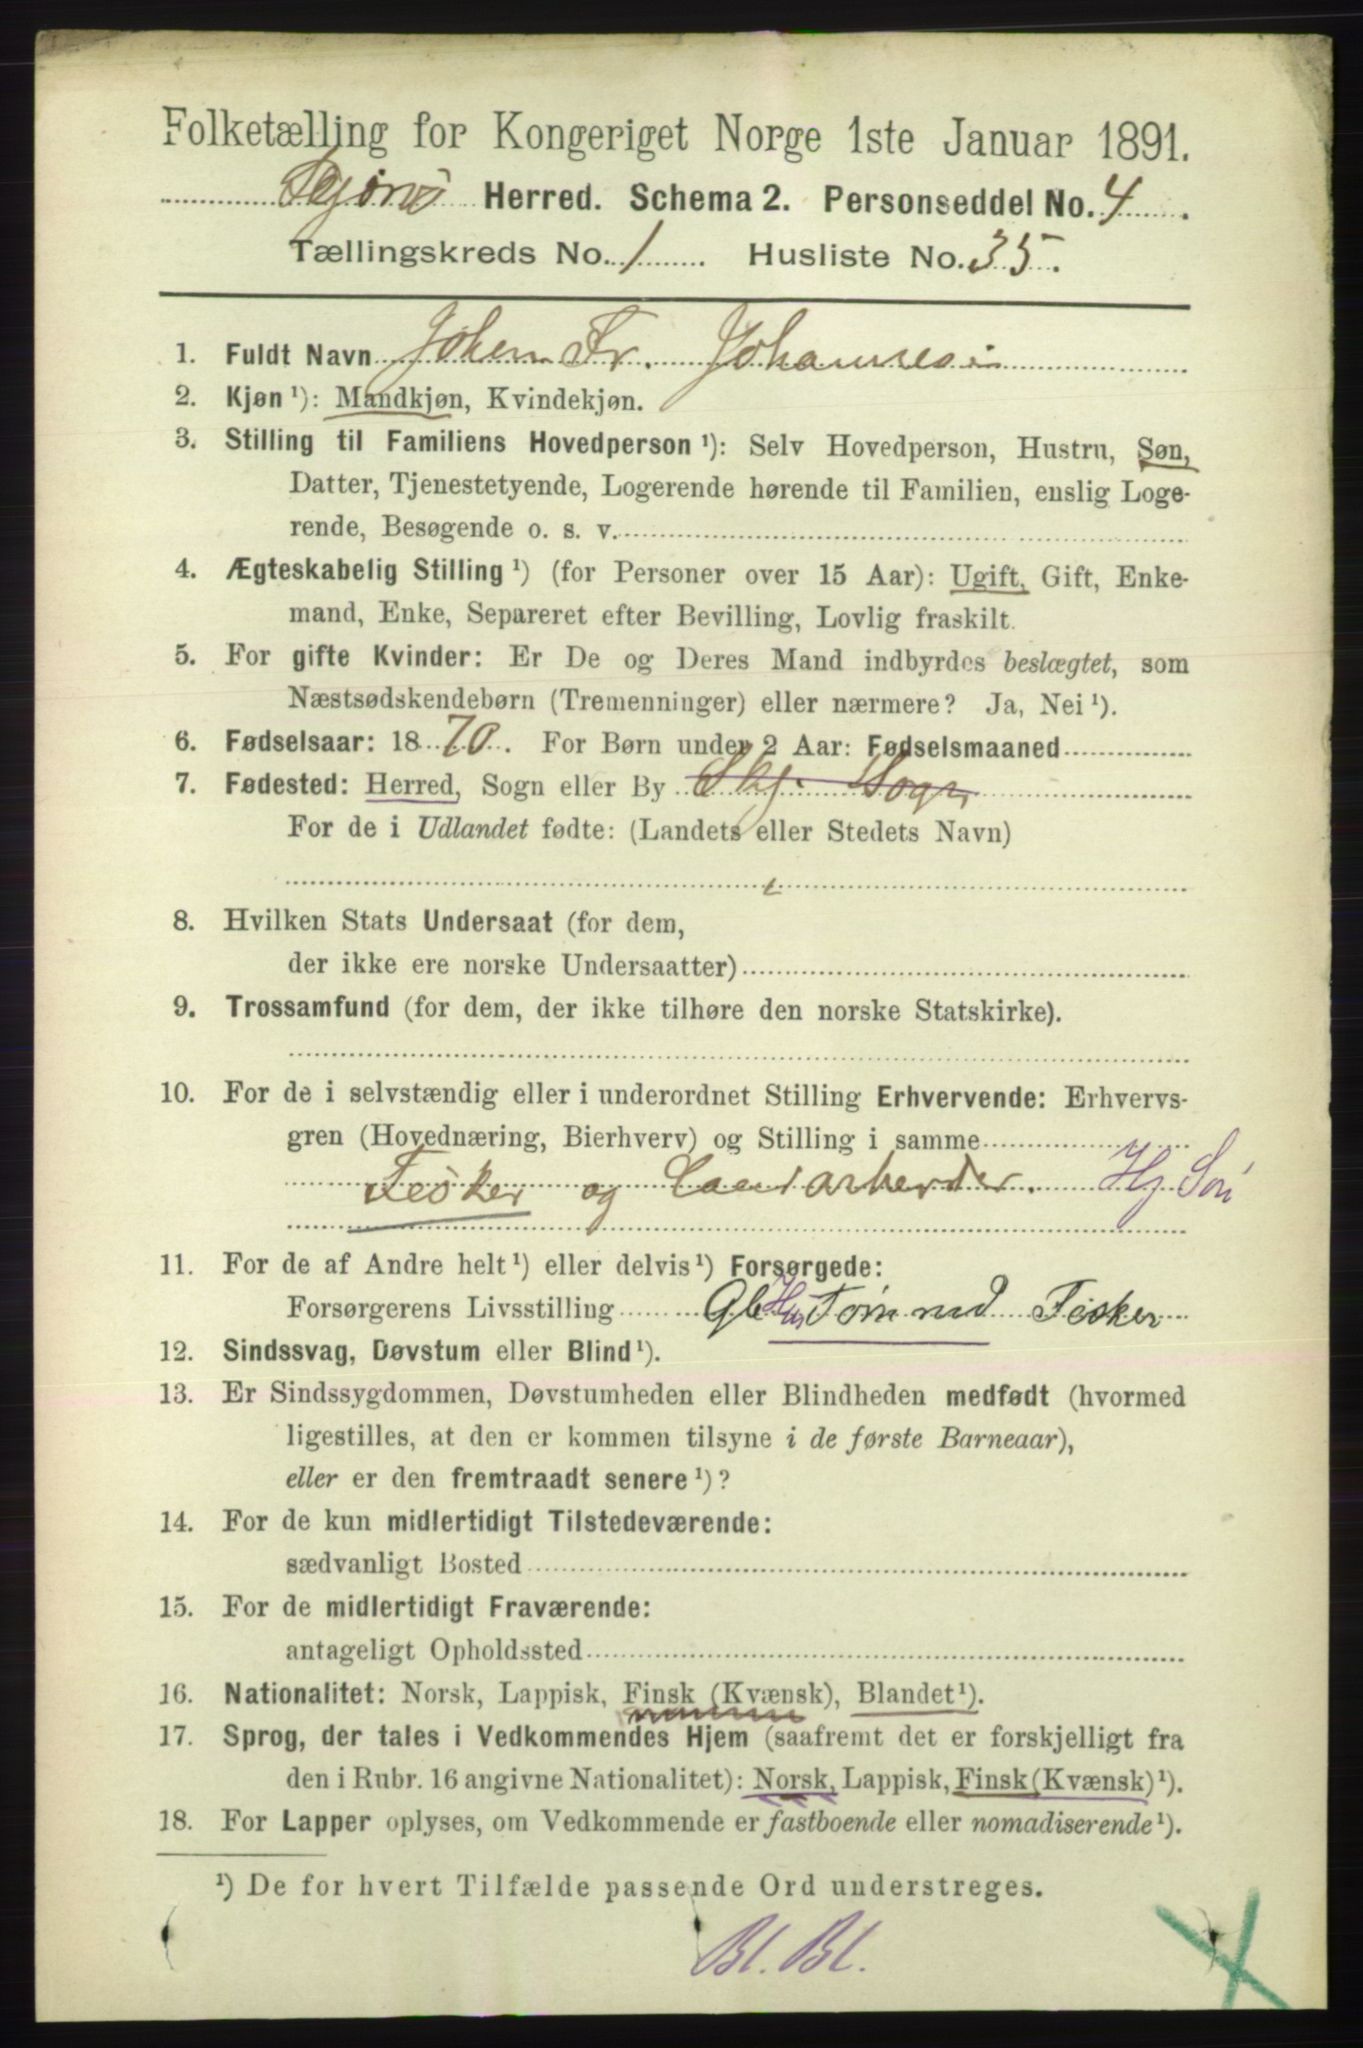 Folketælling for Kongeriget Norge 1ste Januar 1891.
Herred. Schema 2. Personseddel No. 4.
Tællingskreds No. 1 Husliste No. 35.
1. Fuldt Navn Johan Fr. Johannesen
2. Kjøn ¹): Mandkjøn, Kvindekjøn.
3. Stilling til Familiens Hovedperson ¹): Selv Hovedperson, Hustru, Søn,
Datter, Tjenestetyende, Logerende hørende til Familien, enslig Loge-
rende, Besøgende o. s. v.
4. Ægteskabelig Stilling ¹) (for Personer over 15 Aar): Ugift, Gift, Enke-
mand, Enke, Separeret efter Bevilling, Lovlig fraskilt.
5. For gifte Kvinder: Er De og Deres Mand indbyrdes beslægtet, som
Næstsødskendebørn (Tremenninger) eller nærmere? Ja, Nei ¹).
6. Fødselsaar: 1870. For Børn under 2 Aar: Fødselsmaaned
7. Fødested: Herred, Sogn eller By Skj. Sogn
For de i Udlandet fødte: (Landets eller Stedets Navn)
8. Hvilken Stats Undersaat (for dem,
der ikke ere norske Undersaatter)
9. Trossamfund (for dem, der ikke tilhøre den norske Statskirke).
10. For de i selvstændig eller i underordnet Stilling Erhvervende: Erhvervs-
gren (Hovednæring, Bierhverv) og Stilling i samme
Fisker og Landarbeider. Hj Søn
11. For de af Andre helt ¹) eller delvis ¹) Forsørgede:
Forsørgerens Livsstilling Fisker
12. Sindssvag, Døvstum eller Blind ¹).
13. Er Sindssygdommen, Døvstumheden eller Blindheden medfødt (hvormed
ligestilles, at den er kommen tilsyne i de første Barneaar),
eller er den fremtraadt senere ¹)?
14. For de kun midlertidigt Tilstedeværende:
sædvanligt Bosted
15. For de midlertidigt Fraværende:
antageligt Opholdssted
16. Nationalitet: Norsk, Lappisk, Finsk (Kvænsk), Blandet ¹).
17. Sprog, der tales i Vedkommendes Hjem (saafremt det er forskjelligt fra
den i Rubr. 16 angivne Nationalitet): Norsk, Lappisk, Finsk (Kvænsk) ¹).
18. For Lapper oplyses, om Vedkommende er fastboende eller nomadiserende ¹).
¹) De for hvert Tilfælde passende Ord understreges.
Bl. Bl.